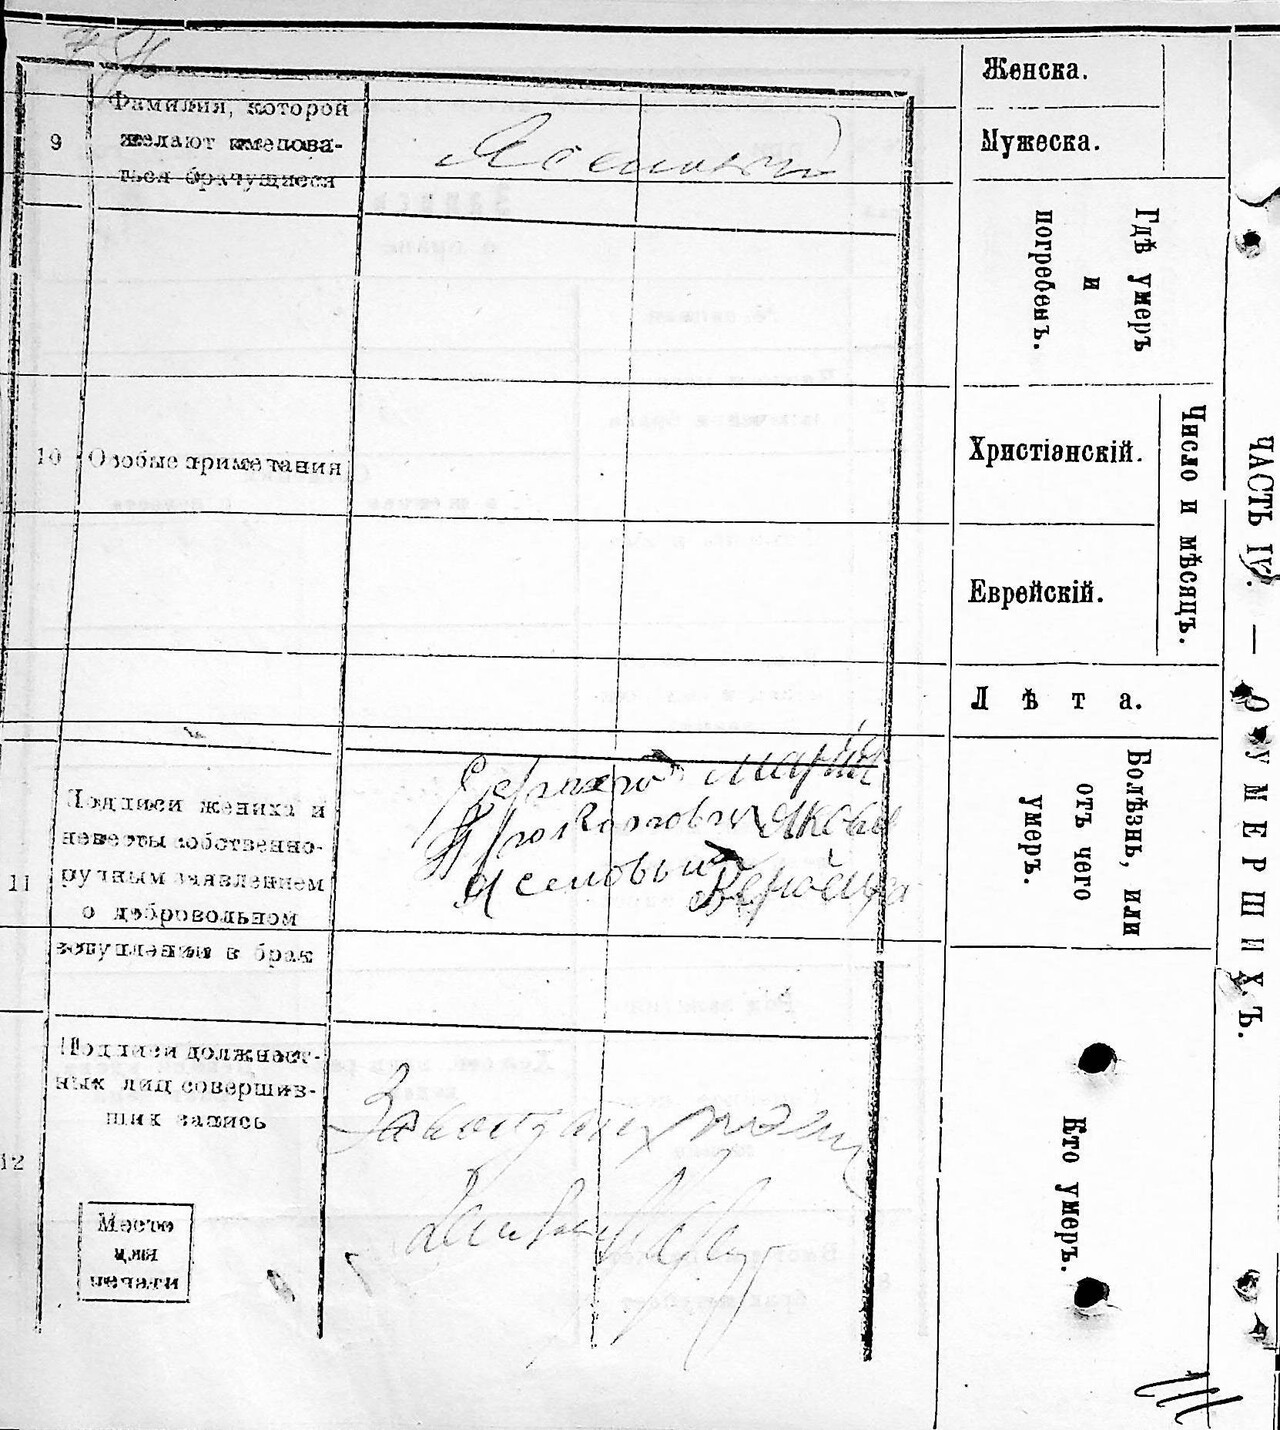 9
Фамилия, которой
желают именова-
ться брачущиеся
Ясеновый
10
Особые примечания
11
Подписи жениха и
невесты собственно-
ручным заявлением
о добровольном
вступлении в брак
Мария
Прокопович Яковы
Ясеновый
12
Подписи должност-
ных лиц совершив-
ших запись
Место
для
печати
Женска.
Мужеска.
Гдѣ умеръ
и
погребенъ.
Число и мѣсяцъ.
Христіанскій.
Еврейскій.
Лѣта.
Болѣзнь, или
отъ чего
умеръ.
Кто умеръ.
ЧАСТЬ IV. — О УМЕРШИХЪ.